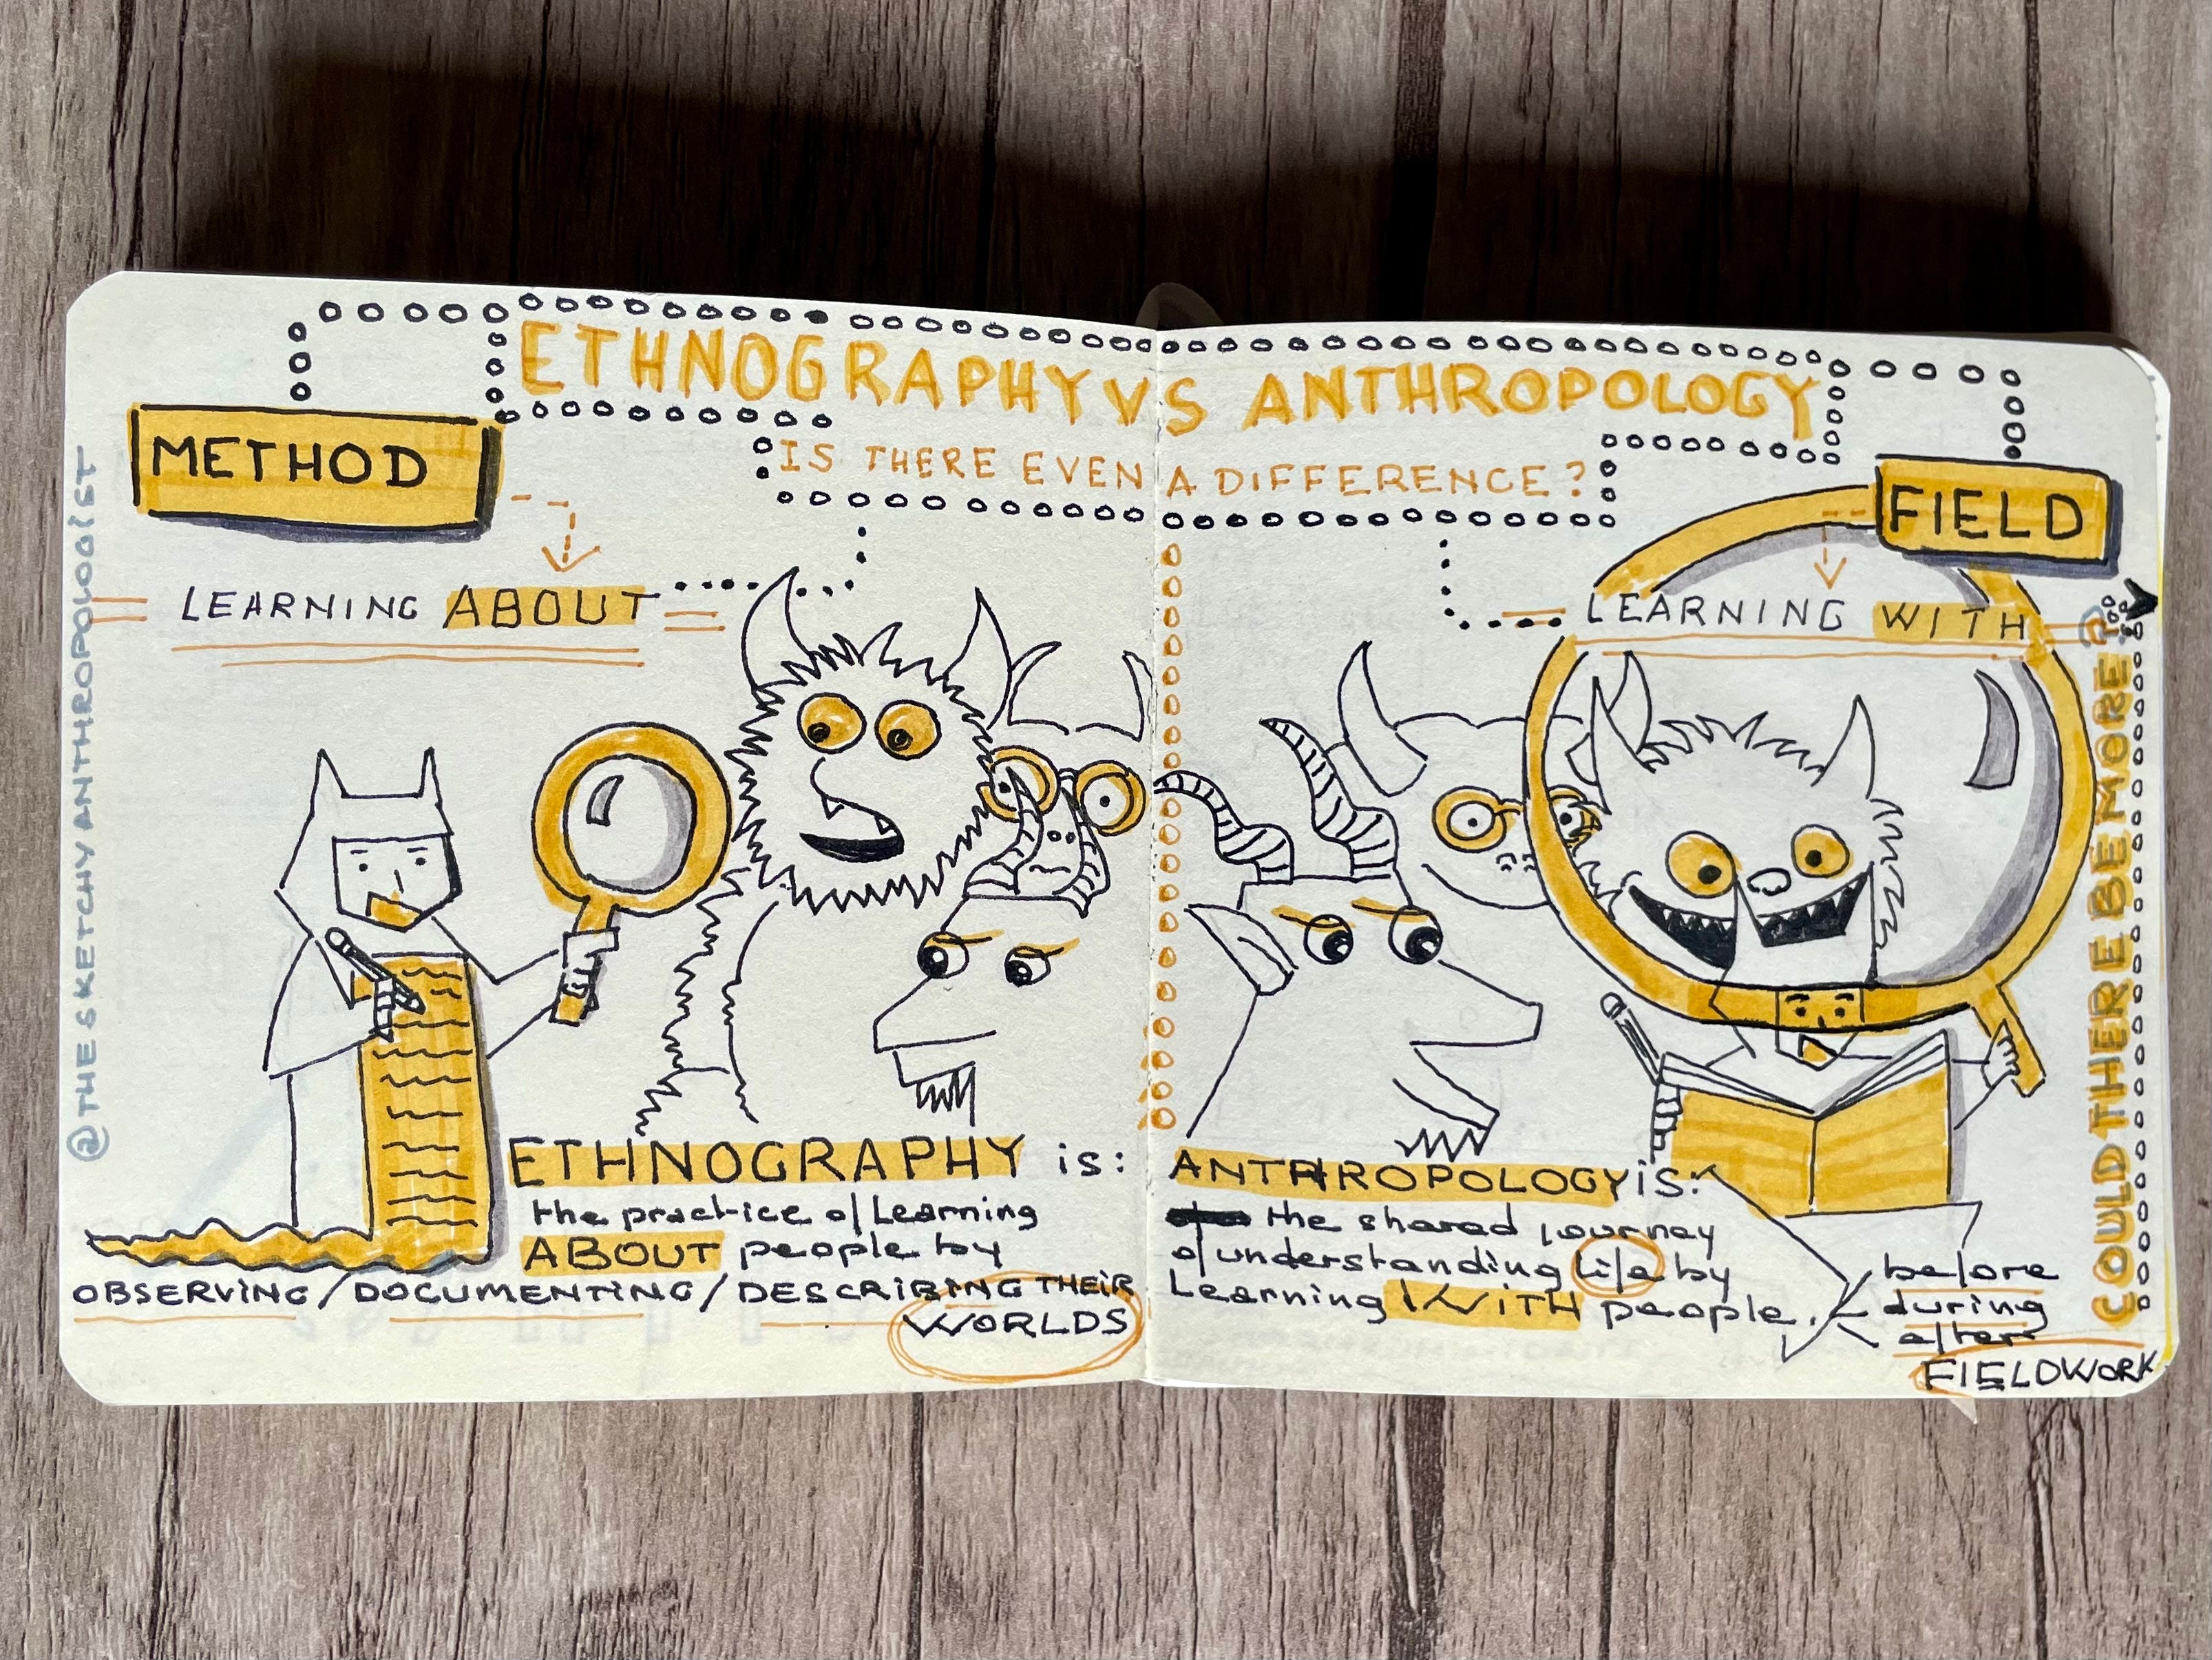 ETHNOGRAPHY VS ANTHROPOLOGY
IS THERE EVEN A DIFFERENCE?
METHOD
LEARNING ABOUT
@THE SKETCHY ANTHROPOLOGIST
ETHNOGRAPHY is:
the practice of Learning
ABOUT people by
OBSERVING/DOCUMENTING/DESCRIBING THEIR
WORLDS
FIELD
LEARNING WITH
ANTHROPOLOGY is:
the shared journey
of understanding life by
Learning WITH people.
before
during
after
FIELDWORK
COULD THERE BE MORE?